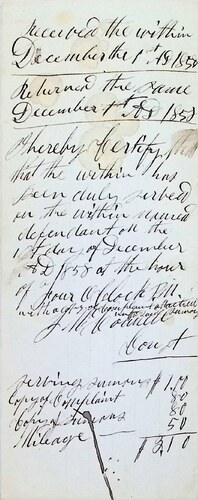 Received the within
December the 1st AD 1858
Returned the same
December 1st AD 1858
I hereby Certify
that the within has
been duly served
on the within named
defendant on the
1st day of December
AD 1858 at the hour
of four O Clock P.M.
with a copy of complaint attached
J McConnell
Const
Serving sumons $1.00
Copy of Complaint 80
Copy Sumons 80
Mileage 50
$3.10